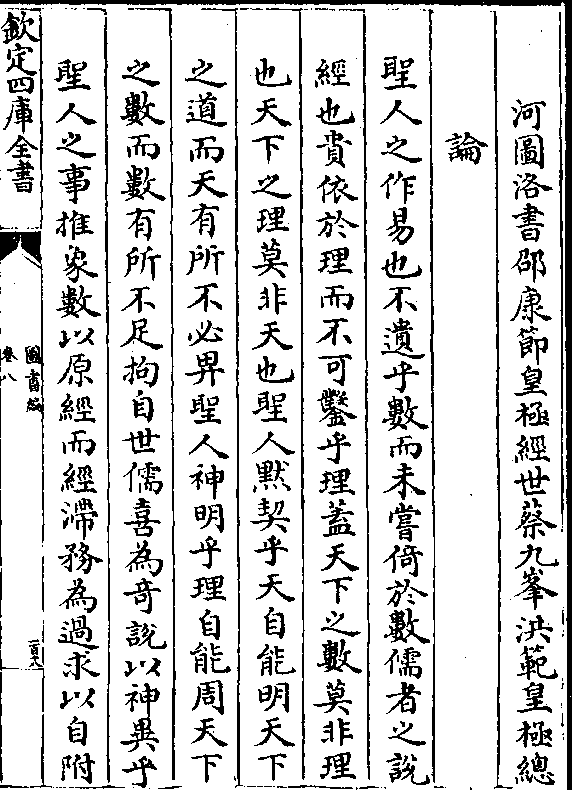 河圖洛書邵康節皇極經世蔡九峯洪範皇極總
論
聖人之作易也不遺乎數而未嘗倚於數儒者之說
經也貴依於理而不可鑿乎理蓋天下之數莫非理
也天下之理莫非天也聖人默契乎天自能明天下
之道而天有所不必畀聖人神明乎理自能周天下
之數而數有所不足拘自世儒喜為奇說以神異乎
聖人之事推象數以原經而經滯務為過求以自附
欽定四庫全書
圖書編
卷八